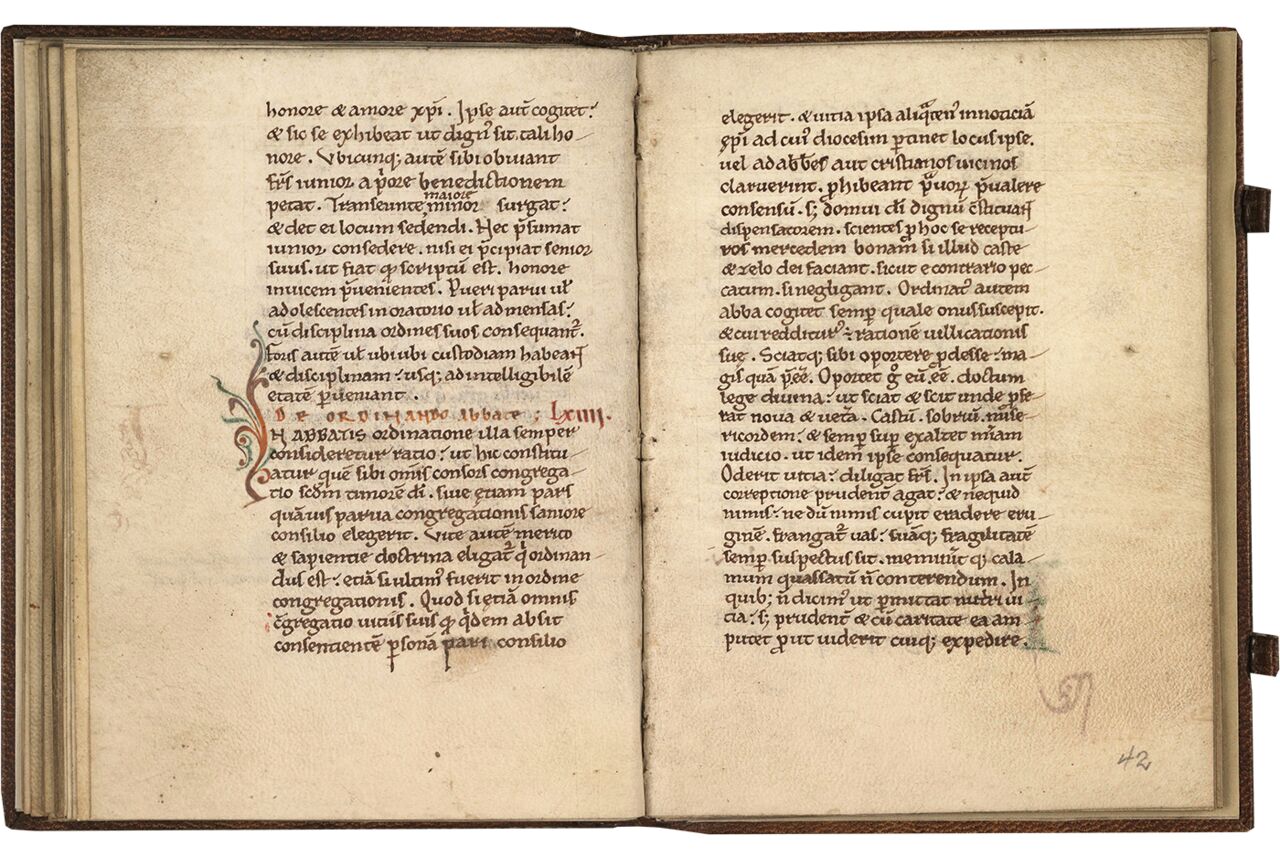 honore & amore xp̄i. Ipse aut̄ cogitet:
& sic se exhibeat ut dign᷒ sit tali ho-
nore. Vbicunq; autē sibi obuiant
fr̄s iunior a p̄ore benedictionem
petat. Transeunte maiore minor surgat:
& det ei locum sedendi. Nec p̄sumat
iunior consedere. nisi ei p̄cipiat senior
suus. ut fiat qđ scriptū est. honore
inuicem p̄uenientes. Pueri parui ul̄
adolescentes in oratorio ul̄ ad mensas:
cū disciplina ordines suos consequant᷑.
foris autē ul̄ ubiubi custodiam habeant
& disciplinam: usq; ad intelligibilē
etatē ꝑueniant.
DE ORDINANDO abbate: lxiiii.
IN ABBATIS ordinatione illa semper
consideretur ratio: ut hic constitu-
atur quē sibi om̄is consors congrega-
tio scđm timorē dī. siue etiam pars
quāuis parua congregationis saniore
consilio elegerit. Vite autē merito
& sapientie doctrina eligat᷑ qͥ ordinan-
dus est: etiā si ultim᷒ fuerit in ordine
congregationis. Quod si etiā omnis
c̄gregatio uitiis suis qđ qͥdem absit
consentientē ꝑsonā pari consilio
elegerit. & uitia ipsa aliqͣten᷒ in notitiā
ep̄i ad cui᷒ diocesim ꝑtinet locus ipse.
uel ad abb̄es aut cristianos uicinos
claruerint. ꝓhibeant prͣuoꝝ p̄ualere
consensū. s; domui dī dignū c̄stituant
dispensatorem. scientes ꝓ hoc se receptu-
ros mercedem bonam si illud caste
& zelo dei faciant. sicut e contrario pec-
catum. si negligant. Ordinat᷒ autem
abba cogitet semꝑ quale onus suscepit.
& cui redditur᷒ ÷ rationē uillicationis
sue. Sciatq; sibi oportere ꝓdesse: ma-
gis quā p̄eē. Oportet gͦ eū eē doctum
lege diuina: ut sciat & scit unde ꝓfe-
rat noua & uet̄a. Castū. sobriū. mise-
ricordem: & semꝑ suꝑexaltet mīam
iudicio. ut idem ipse consequatur.
Oderit uitia: diligat fr̄s. In ipsa aut̄
correptione prudent̄ agat: & nequid
nimis: ne dū nimis cupit eradere eru-
ginē. frangat᷑ uas: suāq; fragilitatē
semꝑ suspectus sit. meminit̄ qđ cala-
mum quassatū n̄ conterendum. In
quib; n̄ dicim᷒ ut ꝑmittat nutri ui-
tia: s; prudent̄ & cū caritate ea am-
putet ꝓut uiderit cuiq; expedire.
42